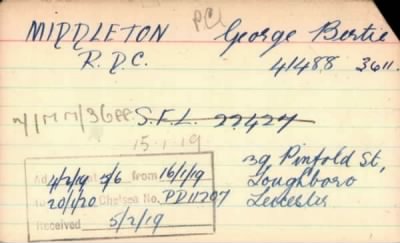 PC
MIDDLETON George Bertie
R.D.C. 41488 3611.
7/MM/3699 S.F.L. 22424
15.1.19
39 Pinfold St,
Loughboro
Leicester
4/2/19 at 5/6 from 16/1/19
to 20/1/20 Chelsea No. PD11207
Received 5/2/19